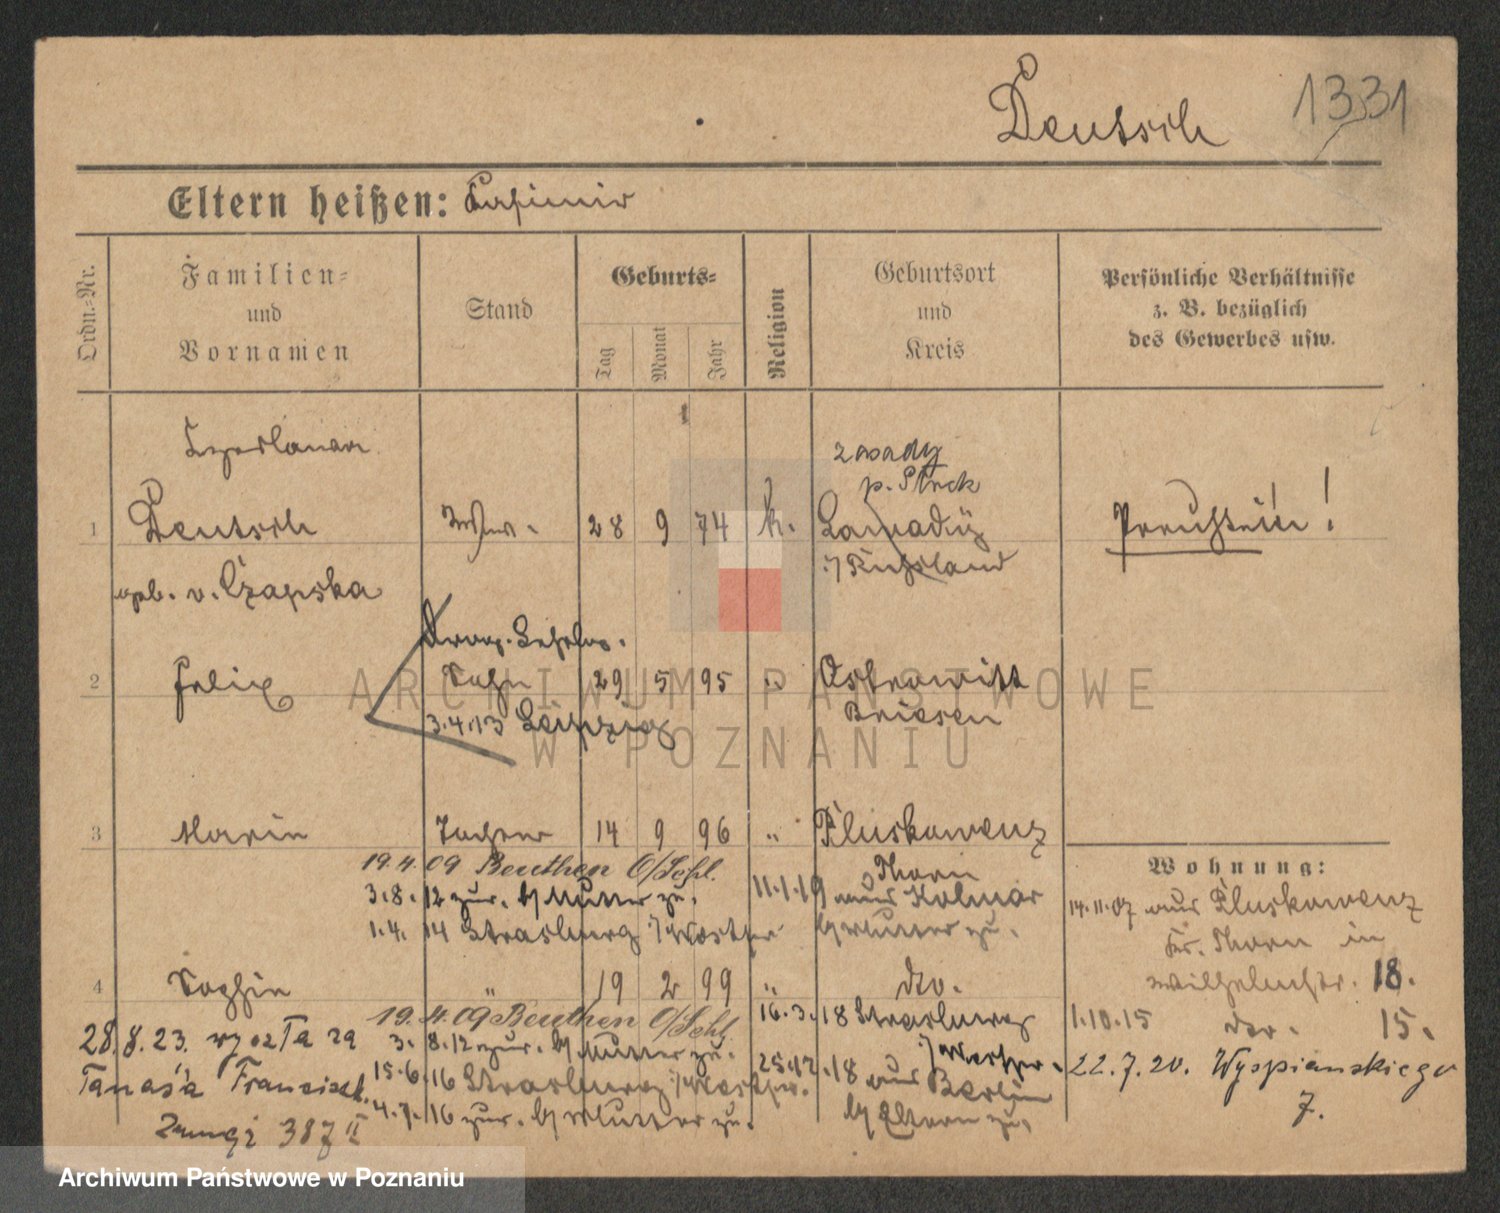 Deutsch 1331
Eltern heißen: Casimir
Ordn.=Nr.
Familien=
und
Vornamen
Stand
Geburts=
Tag
Monat
Jahr
Religion
Geburtsort
und
Kreis
Persönliche Verhältnisse
z. B. bezüglich
des Gewerbes usw.
zasady
p.
1 Deutsch 28 9 74 k. Preußein!
i/Russland
geb. v. Czapska
2 Felix Sohn 29 5 95 " Ostrowitt
3.4.13 Leipzig Briesen
3 Marie Tochter 14 9 96 " Pluskowenz
Thorn
19.4.09 Beuthen O/Schl.
3.8.12 zur. b/Mutter zu.
1.4.14 Strasburg i/Westpr
11.1.19 aus Kolmar
b/Mutter zu.
Wohnung:
14.11.07 aus Pluskowenz
Kr. Thorn in
Wilhelmstr. 18.
4 Sophie " 19 2 99 " dto.
19.4.09 Beuthen O/Schl
3.8.12 zur. b/Mutter zu.
15.6.16 Strasburg i/Westpr.
4.7.16 zur. b/Mutter zu.
16.3.18 Strasburg
i/Westpr.
25.12.18 aus Berlin
b/Eltern zu.
1.10.15 15.
22.7.20. Wyspianskiego
7.
28.8.23. za
Tanaś'a Francisz.
387 II
ARCHIWUM PAŃSTWOWE
W POZNANIU
Archiwum Państwowe w Poznaniu